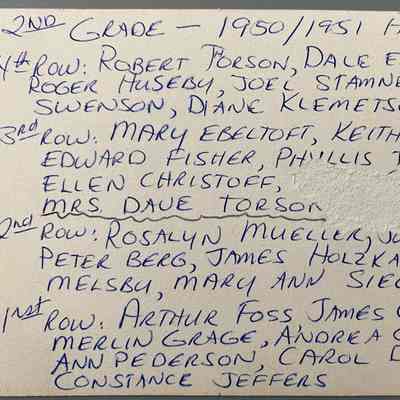 2ND GRADE — 1950/1951 H
4th ROW: ROBERT TORSON, DALE E
ROGER HUSEBY, JOEL STAMNE
SWENSON, DIANE KLEMETS
3rd ROW: MARY EBELTOFT, KEITH
EDWARD FISHER, PHYLLIS
ELLEN CHRISTOFF,
MRS. DAVE TORSON
2nd ROW: ROSALYN MUELLER, JU
PETER BERG, JAMES HOLZKA
MELSBY, MARY ANN SIEG
1rst ROW: ARTHUR FOSS, JAMES
MERLIN GRAGE, ANDREA
ANN PEDERSON, CAROL
CONSTANCE JEFFERS